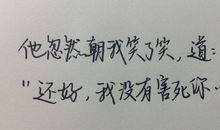 他忽然朝我笑了笑，道：
"还好，我没有害死你…